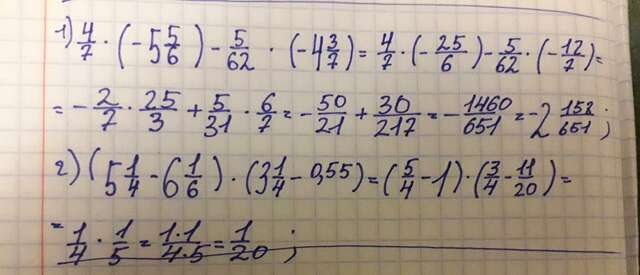 1) 4/7 · (-5 5/6) - 5/62 · (-4 3/7) = 4/7 · (-25/6) - 5/62 · (-12/7) =
= -2/7 · 25/3 + 5/31 · 6/7 = -50/21 + 30/217 = -1460/651 = -2 158/651;
2) (5 1/4 - 6 1/6) · (3 1/4 - 0,55) = (5/4 - 1) · (3/4 - 11/20) =
= 1/4 · 1/5 = 1·1/4·5 = 1/20;